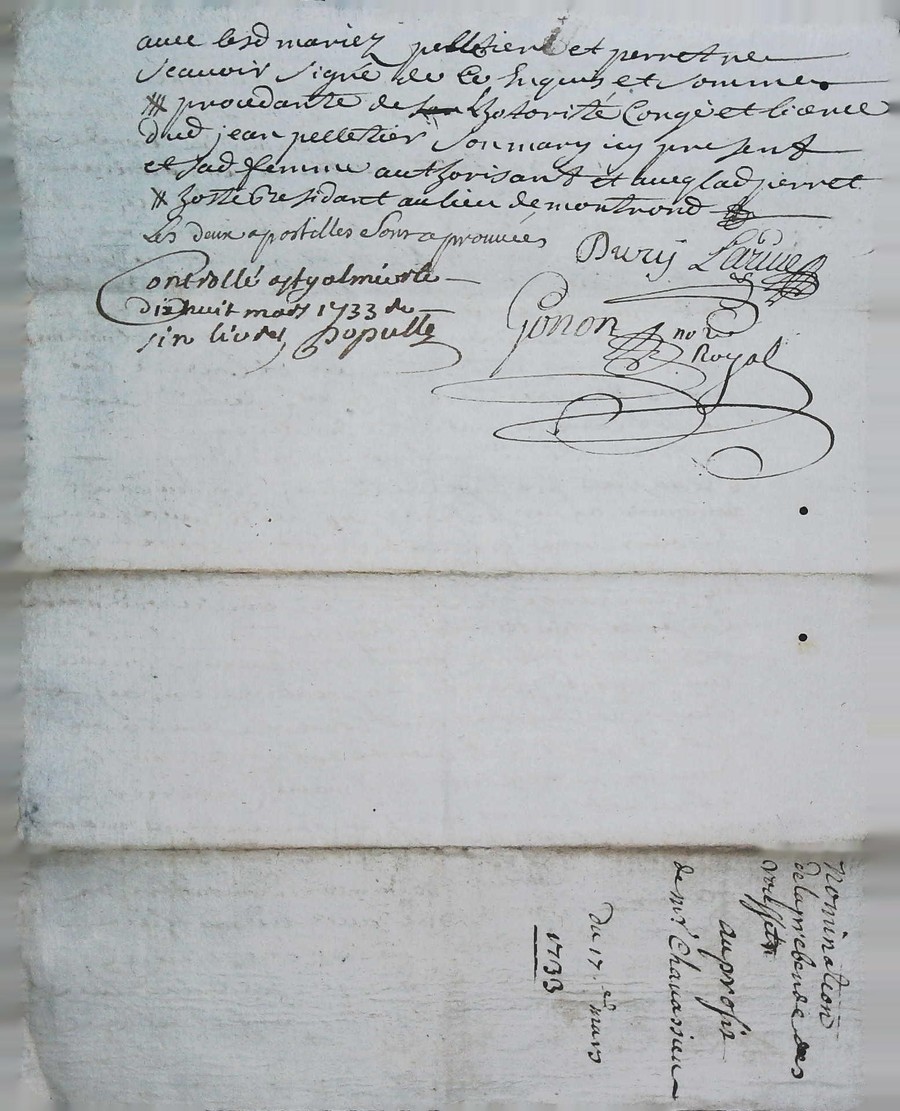 avec lesd mariez pelletier et perret ne
scavoir signé de ce enquis et sommes
procedante de lhotorité Congé et licence
dud jean pelletier son mary icy present
et sad femme authorisant et aveq lad pierret
hoste residant au lieu de montrond
Les deux apostilles sont aprouvées
Dury Larue
Controllé a st galmier le
dix huit mars 1733 
six livres Populle
Gonon nore
Royal
Nomination
de la prebende des
au profit
de mr Chavassieu
du 17e mars
1733